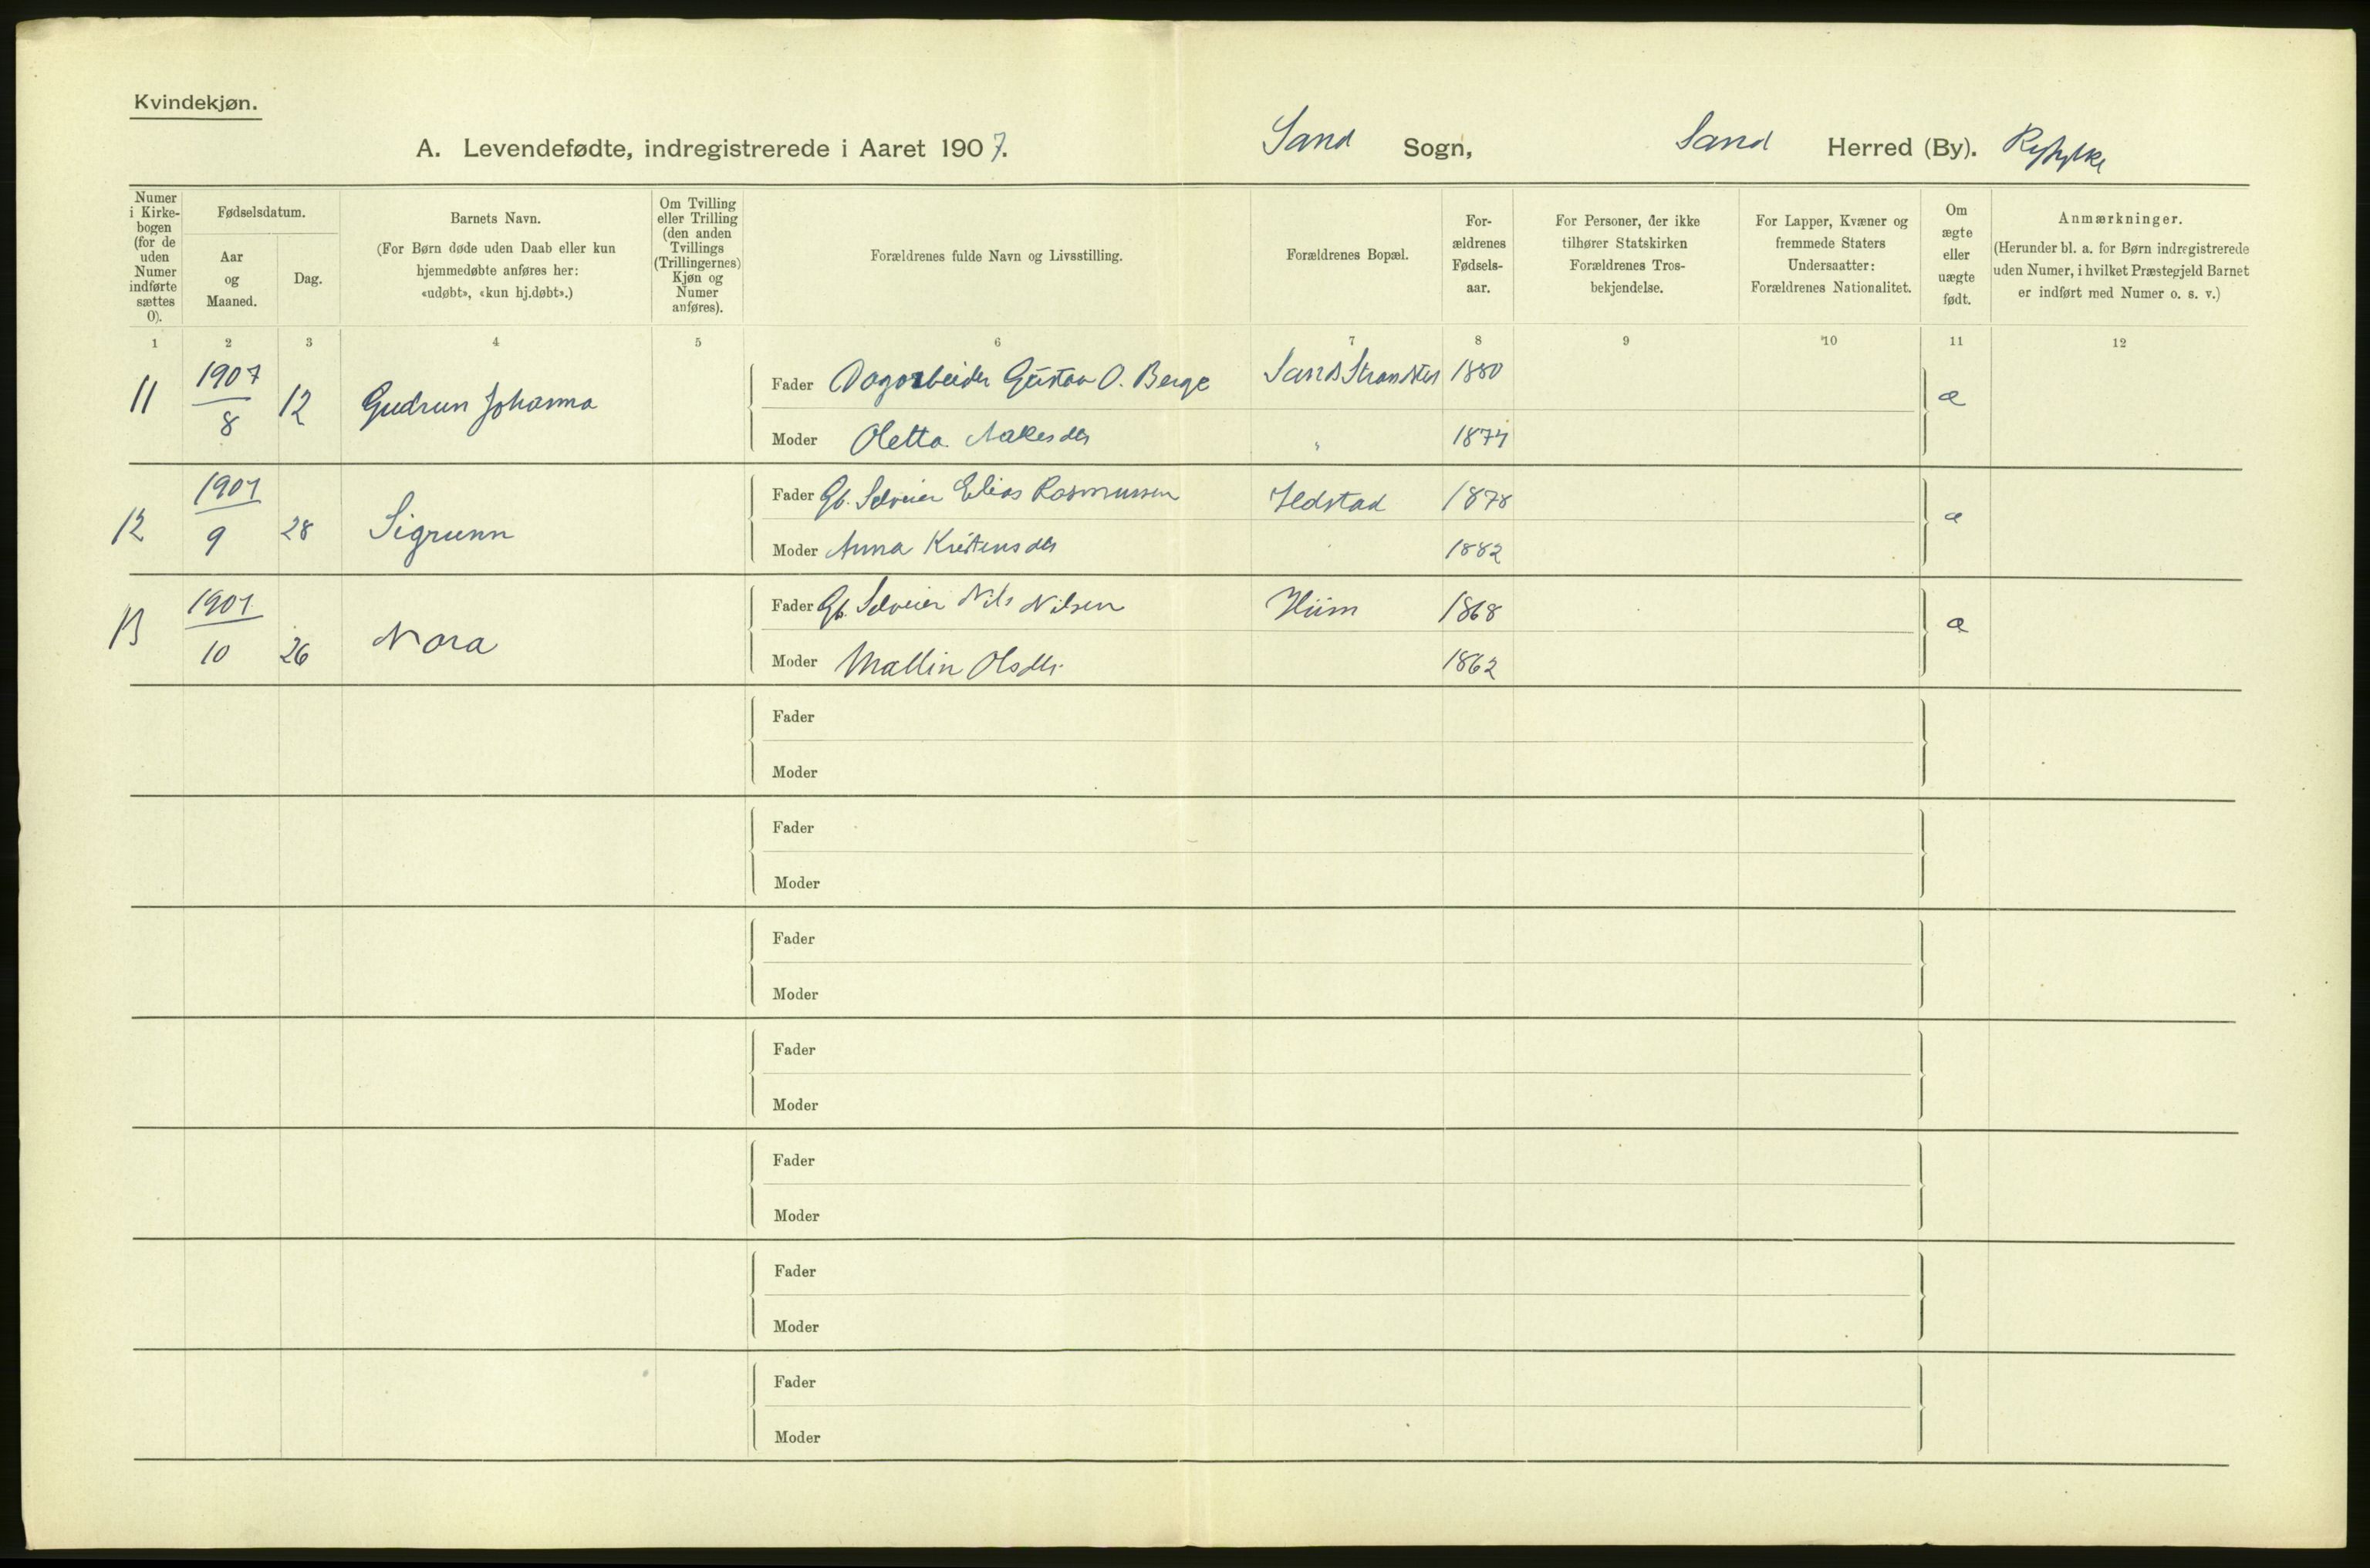 Kvindekjøn.
A. Levendefødte, indregistrerede i Aaret 1907. Sand Sogn, Sand Herred (By). Ryfylke
Numer i Kirkebogen (for de uden Numer indførte sættes 0).
Fødselsdatum.
Aar og Maaned.
Dag.
Barnets Navn.
(For Børn døde uden Daab eller kun
hjemmedøbte anføres her:
«udøbt», «kun hj.døbt».)
Om Tvilling
eller Trilling
(den anden
Tvillings
(Trillingernes)
Kjøn og
Numer
anføres).
Forældrenes fulde Navn og Livsstilling.
Forældrenes Bopæl.
For-
ældrenes
Fødsels-
aar.
For Personer, der ikke
tilhører Statskirken
Forældrenes Tros-
bekjendelse.
For Lapper, Kvæner og
fremmede Staters
Undersaatter:
Forældrenes Nationalitet.
Om
ægte
eller
uægte
født.
Anmærkninger.
(Herunder bl. a. for Børn indregistrerede
uden Numer, i hvilket Præstegjeld Barnet
er indført med Numer o. s. v.)
1 2 3 4 5 6 7 8 9 10 11 12
11 1907 8 12 Gudrun Johanna Fader Dagarbeider Gustav O. Berge Sand Strandsted 1880 æ
Moder Oletta Aakesdtr " 1874
12 1907 9 28 Sigrunn Fader Gb. Selveier Elias Rasmussen 1878 æ
Moder Anna Kristensdtr " 1882
13 1907 10 26 Nora Fader Gb. Selveier Nils Nilsen Hiim 1868 æ
Moder Mallin Olsdtr. 1862
Fader
Moder
Fader
Moder
Fader
Moder
Fader
Moder
Fader
Moder
Fader
Moder
Fader
Moder